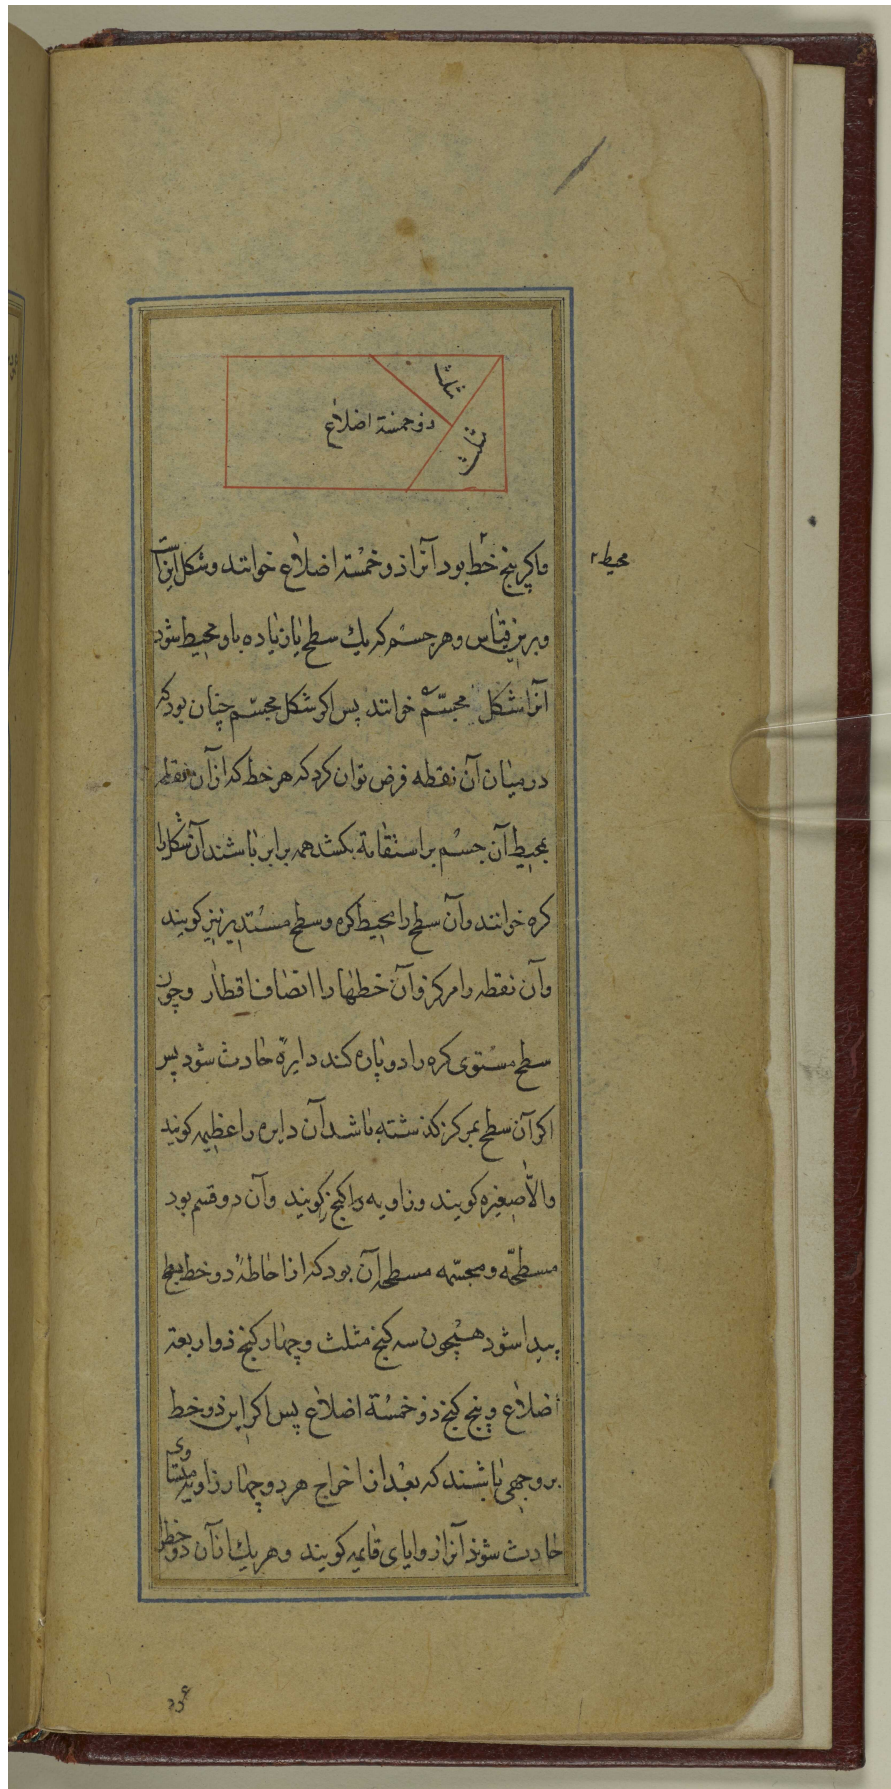 مثلث
ذو خمسة اضلاع
مثلث
واکر پنج خط بود آنرا ذو خمسة اضلاع خوانند وشکل اینست
محیط
وبرین قیاس وهر جسم که یك سطح یا زیاده باو محیط شود
آنرا شکل مجسّم خوانند پس اکر شکل مجسّم چنان بود که
در میان آن نقطه فرض توان کرد که هر خط که از آن نقطه
بمحیط آن جسم بر استقامة بکشد همه برابر باشند آن شکل را
کره خوانند وآن سطح را محیط کره وسطح مستدیر نیز کویند
وآن نقطه را مرکز وآن خطها را انصاف اقطار وچون
سطح مستوی کره را دو پاره کند دایرهٔ حادث شود پس
اکر آن سطح بمرکز کذشته باشد آن دایره را عظیمه کویند
والّا صغیره کویند وزاویه را کنج کویند وآن دو قسم بود
مسطحّه ومجسّمه مسطحه آن بود که از احاطهٔ دو خط بسطح
پیدا شود همچون سه کنج مثلث وچهار کنج ذو اربعة
أضلاع وپنج کنج ذو خمسة اضلاع پس اکر این دو خط
بر وجهی باشند که بعد از اخراج هر دو چهار زاویه متساوی
حادث شود آنرا زوایای قایمه کویند وهر یك از آن دو خط